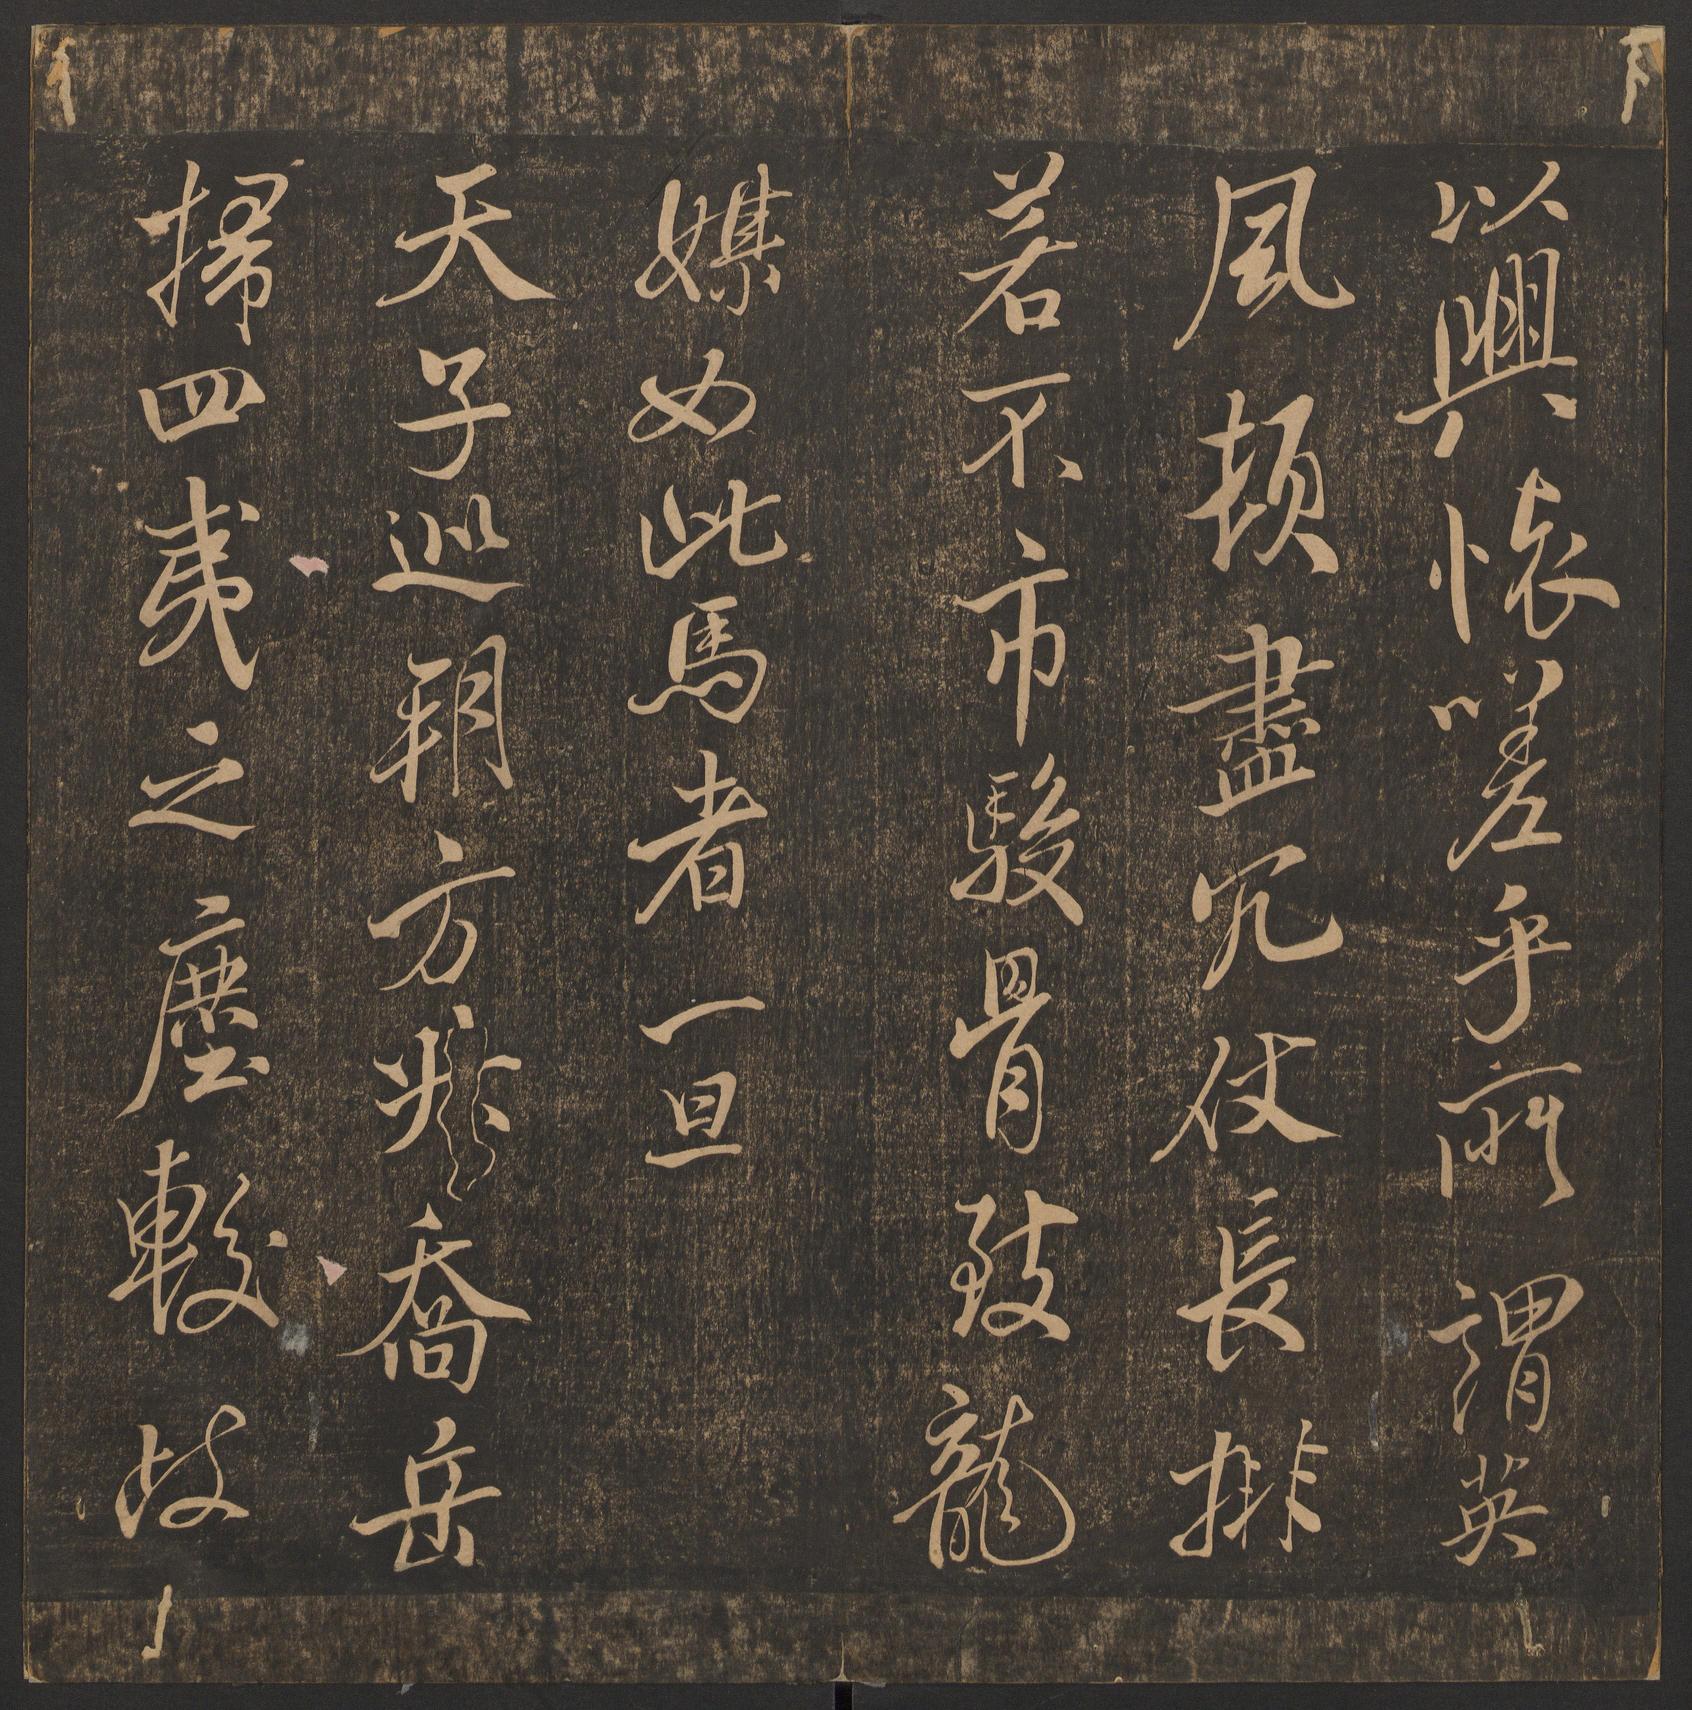 以興懷嗟乎所謂英
風頓盡冗仗長排
若不市駿骨致龍
媒如此馬者一旦
天子巡朔方喬岳
掃四夷之塵較岐